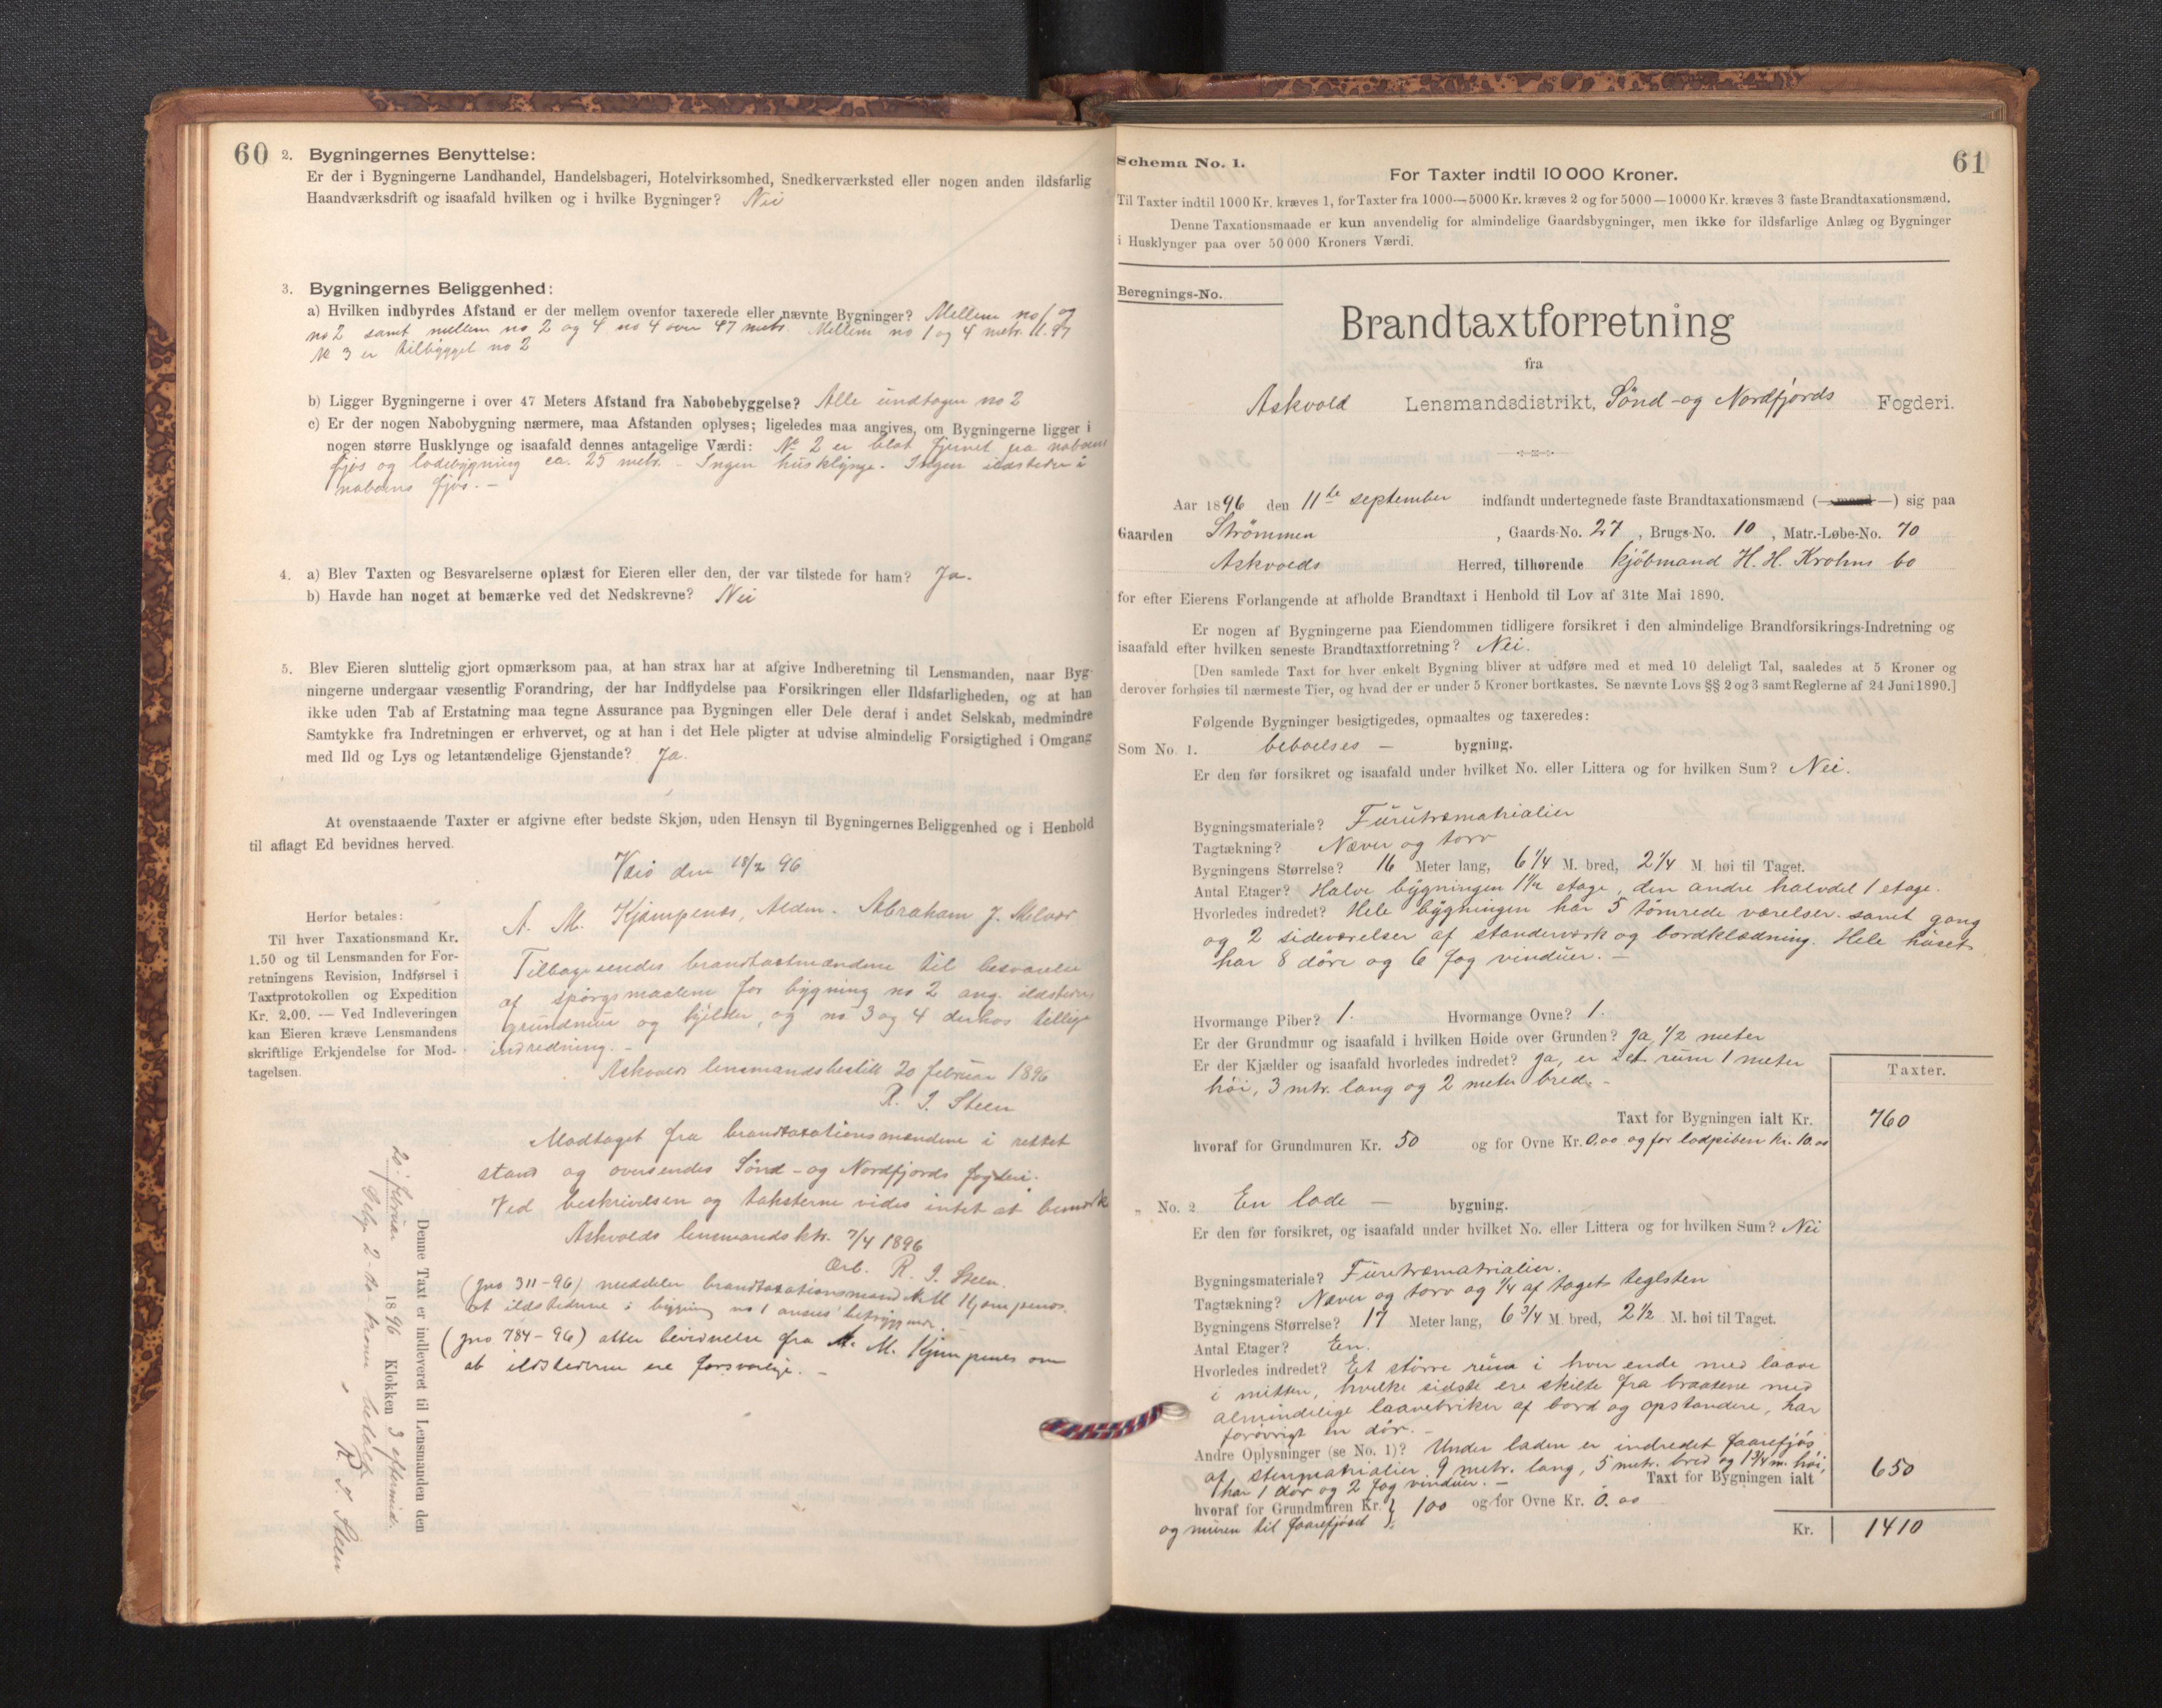 60
2. Bygningernes Benyttelse:
Er der i Bygningerne Landhandel, Handelsbageri, Hotelvirksomhed, Snedkerværksted eller nogen anden ildsfarlig
Haandværksdrift og isaafald hvilken og i hvilke Bygninger? Nei
3. Bygningernes Beliggenhed:
a) Hvilken indbyrdes Afstand er der mellem ovenfor taxerede eller nævnte Bygninger? Mellem no 1 og
no 2 samt mellem no 2 og 4 no 4 over 47 metr. Mellem no 1 og 4 metr.
No 3 er tilbygget no 2
b) Ligger Bygningerne i over 47 Meters Afstand fra Nabobebyggelse? Alle undtagen no 2
c) Er der nogen Nabobygning nærmere, maa Afstanden oplyses; ligeledes maa angives, om Bygningerne ligger i
nogen større Husklynge og isaafald dennes antagelige Værdi: No 2 er blot fjernet fra naboens
fjøs og ladebygning ca. 25 metr. - Ingen husklynge. Ingen ildsteder i
naboens fjøs. -
4. a) Blev Taxten og Besvarelserne oplæst for Eieren eller den, der var tilstede for ham? Ja.
b) Havde han noget at bemærke ved det Nedskrevne? Nei
5. Blev Eieren sluttelig gjort opmærksom paa, at han strax har at afgive Indberetning til Lensmanden, naar Byg-
ningerne undergaar væsentlig Forandring, der har Indflydelse paa Forsikringen eller Ildsfarligheden, og at han
ikke uden Tab af Erstatning maa tegne Assurance paa Bygningen eller Dele deraf i andet Selskab, medmindre
Samtykke fra Indretningen er erhvervet, og at han i det Hele pligter at udvise almindelig Forsigtighed i Omgang
med Ild og Lys og letantændelige Gjenstande? Ja.
At ovenstaaende Taxter er afgivne efter bedste Skjøn, uden Hensyn til Bygningernes Beliggenhed og i Henhold
til aflagt Ed bevidnes herved.
den 18/2 96
A. M. Kjempenes, Alden. Abraham J. Melvær
Herfor betales:
Til hver Taxationsmand Kr.
1.50 og til Lensmanden for For-
retningens Revision, Indførsel i
Taxtprotokollen og Expedition
Kr. 2.00. — Ved Indleveringen
kan Eieren kræve Lensmandens
skriftlige Erkjendelse for Mod-
tagelsen.
Tilbagesendes brandtaxtmændene til besvarelse
af spørgsmaalene for bygning no 2 ang. ildsteder,
grundmur og kjelder, og no 3 og 4 derhos tillige
indredning. -
Askvolds lensmandsbestill 20 februar 1896
R. J. Steen
Modtaget fra brandtaxationsmændene i rettet
stand og oversendes Sönd- og Nordfjords fogderi.
Ved beskrivelsen og taksterne vides intet at bemærk
Askvolds lensmandsktr. 7/4 1896
Ærb. R. J. Steen.
(jno 311-96) meddeler brandtaxationsmand A. M Kjempenes.
at ildstederne i bygning no 1 ansees betryggende. -
(jno 784-96) atter bevidnelse fra A. M. Kjempenes om
at ildstederne ere forsvarlige. -
Denne Taxt er indleveret til Lensmanden den
20. februar 1896 Klokken 3 eftermid.
Gebyr 2 - to - kroner betalt.
R. J. Steen
61
Schema No. 1.
For Taxter indtil 10 000 Kroner.
Til Taxter indtil 1000 Kr. kræves 1, for Taxter fra 1000—5000 Kr. kræves 2 og for 5000—10000 Kr. kræves 3 faste Brandtaxationsmænd.
Denne Taxationsmaade er kun anvendelig for almindelige Gaardsbygninger, men ikke for ildsfarlige Anlæg og Bygninger
i Husklynger paa over 50 000 Kroners Værdi.
Beregnings-No.
Brandtaxtforretning
fra
Askvold Lensmandsdistrikt, Sönd- og Nordfjords Fogderi.
Aar 1896 den 11te september indfandt undertegnede faste Brandtaxationsmænd (—mand—) sig paa
Gaarden Strømmen, Gaards-No. 27, Brugs-No. 10, Matr.-Løbe-No. 70
Askvolds Herred, tilhørende kjöbmand H. H. Krohns bo
for efter Eierens Forlangende at afholde Brandtaxt i Henhold til Lov af 31te Mai 1890.
Er nogen af Bygningerne paa Eiendommen tidligere forsikret i den almindelige Brandforsikrings-Indretning og
isaafald efter hvilken seneste Brandtaxtforretning? Nei.
[Den samlede Taxt for hver enkelt Bygning bliver at udføre med et med 10 deleligt Tal, saaledes at 5 Kroner og
derover forhøies til nærmeste Tier, og hvad der er under 5 Kroner bortkastes. Se nævnte Lovs §§ 2 og 3 samt Reglerne af 24 Juni 1890.]
Følgende Bygninger besigtigedes, opmaaltes og taxeredes:
Som No. 1. beboelses - bygning.
Er den før forsikret og isaafald under hvilket No. eller Littera og for hvilken Sum? Nei.
Bygningsmateriale? Furutræmatrialier
Tagtækning? Næver og torv
Bygningens Størrelse? 16 Meter lang, 6 1/4 M. bred, 2 1/4 M. høi til Taget.
Antal Etager? Halve bygningen 1 1/2 etage, den andre halvdel 1 etage.
Hvorledes indredet? Hele bygningen har 5 tömrede værelser samt gang
og 2 sideværelser af standerværk og bordklædning. Hele huset
har 8 döre og 6 fag vinduer. -
Hvormange Piber? 1. Hvormange Ovne? 1.
Er der Grundmur og isaafald i hvilken Høide over Grunden? Ja, 1/2 meter
Er der Kjælder og isaafald hvorledes indredet? Ja, er et rum 1 meter
höi, 3 mtr. lang og 2 meter bred. -
Taxter.
Taxt for Bygningen ialt Kr. 760
hvoraf for Grundmuren Kr. 50 og for Ovne Kr. 0.00 og for lodpiben Kr. 10.00
„ No. 2 En lade - bygning.
Er den før forsikret, og isaafald under hvilket No. eller Littera og for hvilken Sum? Nei
Bygningsmateriale? Furetræmatrialier.
Tagtækning? Næver og torv og 1/4 af taget teglsten
Bygningens Størrelse? 17 Meter lang, 6 3/4 M. bred, 2 1/2 M. høi til Taget.
Antal Etager? En.
Hvorledes indredet? Et större rum i hver ende med laave
i mitten, hvilke sidste ere skilte fra braatene med
almindelige laavebriker af bord og opstandere, har
forövrigt en dör. -
Andre Oplysninger (se No. 1)? Under laden er indredet faarefjös
af stenmatrialier 9 metr. lang, 5 metr. bred og 1 3/4 m. höi,
har 1 dör og 2 fag vinduer. - Taxt for Bygningen ialt 650
hvoraf for Grundmuren Kr. } 100 og for Ovne Kr. 0.00
og muren til faarefjöset
Kr. 1410